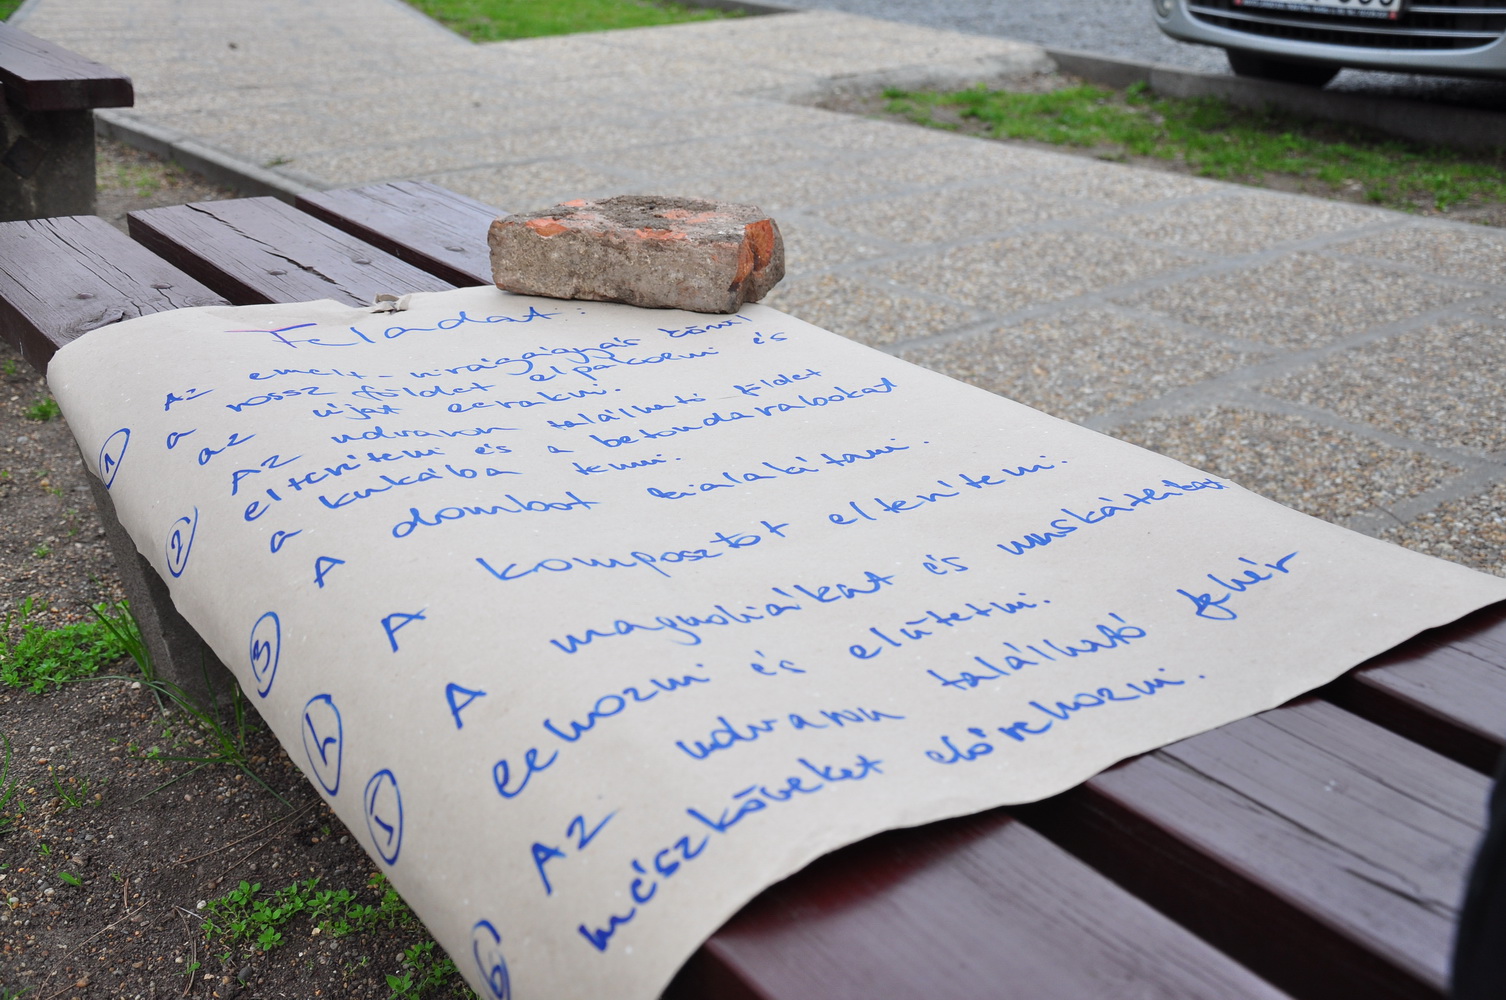 Feladat:
① Az emelt-virágágyás körül
a rossz földet elpakolni és
az újat lerakni.
② Az udvaron található földet
elteríteni és a betondarabokat
a kukába tenni.
③ A dombot kialakítani.
④ A komposztot elteríteni.
⑤ A magnoliákat és muskátlikat
lehozni és elűtetni.
⑥ Az udvaron található fehér
mészköveket előrehozni.